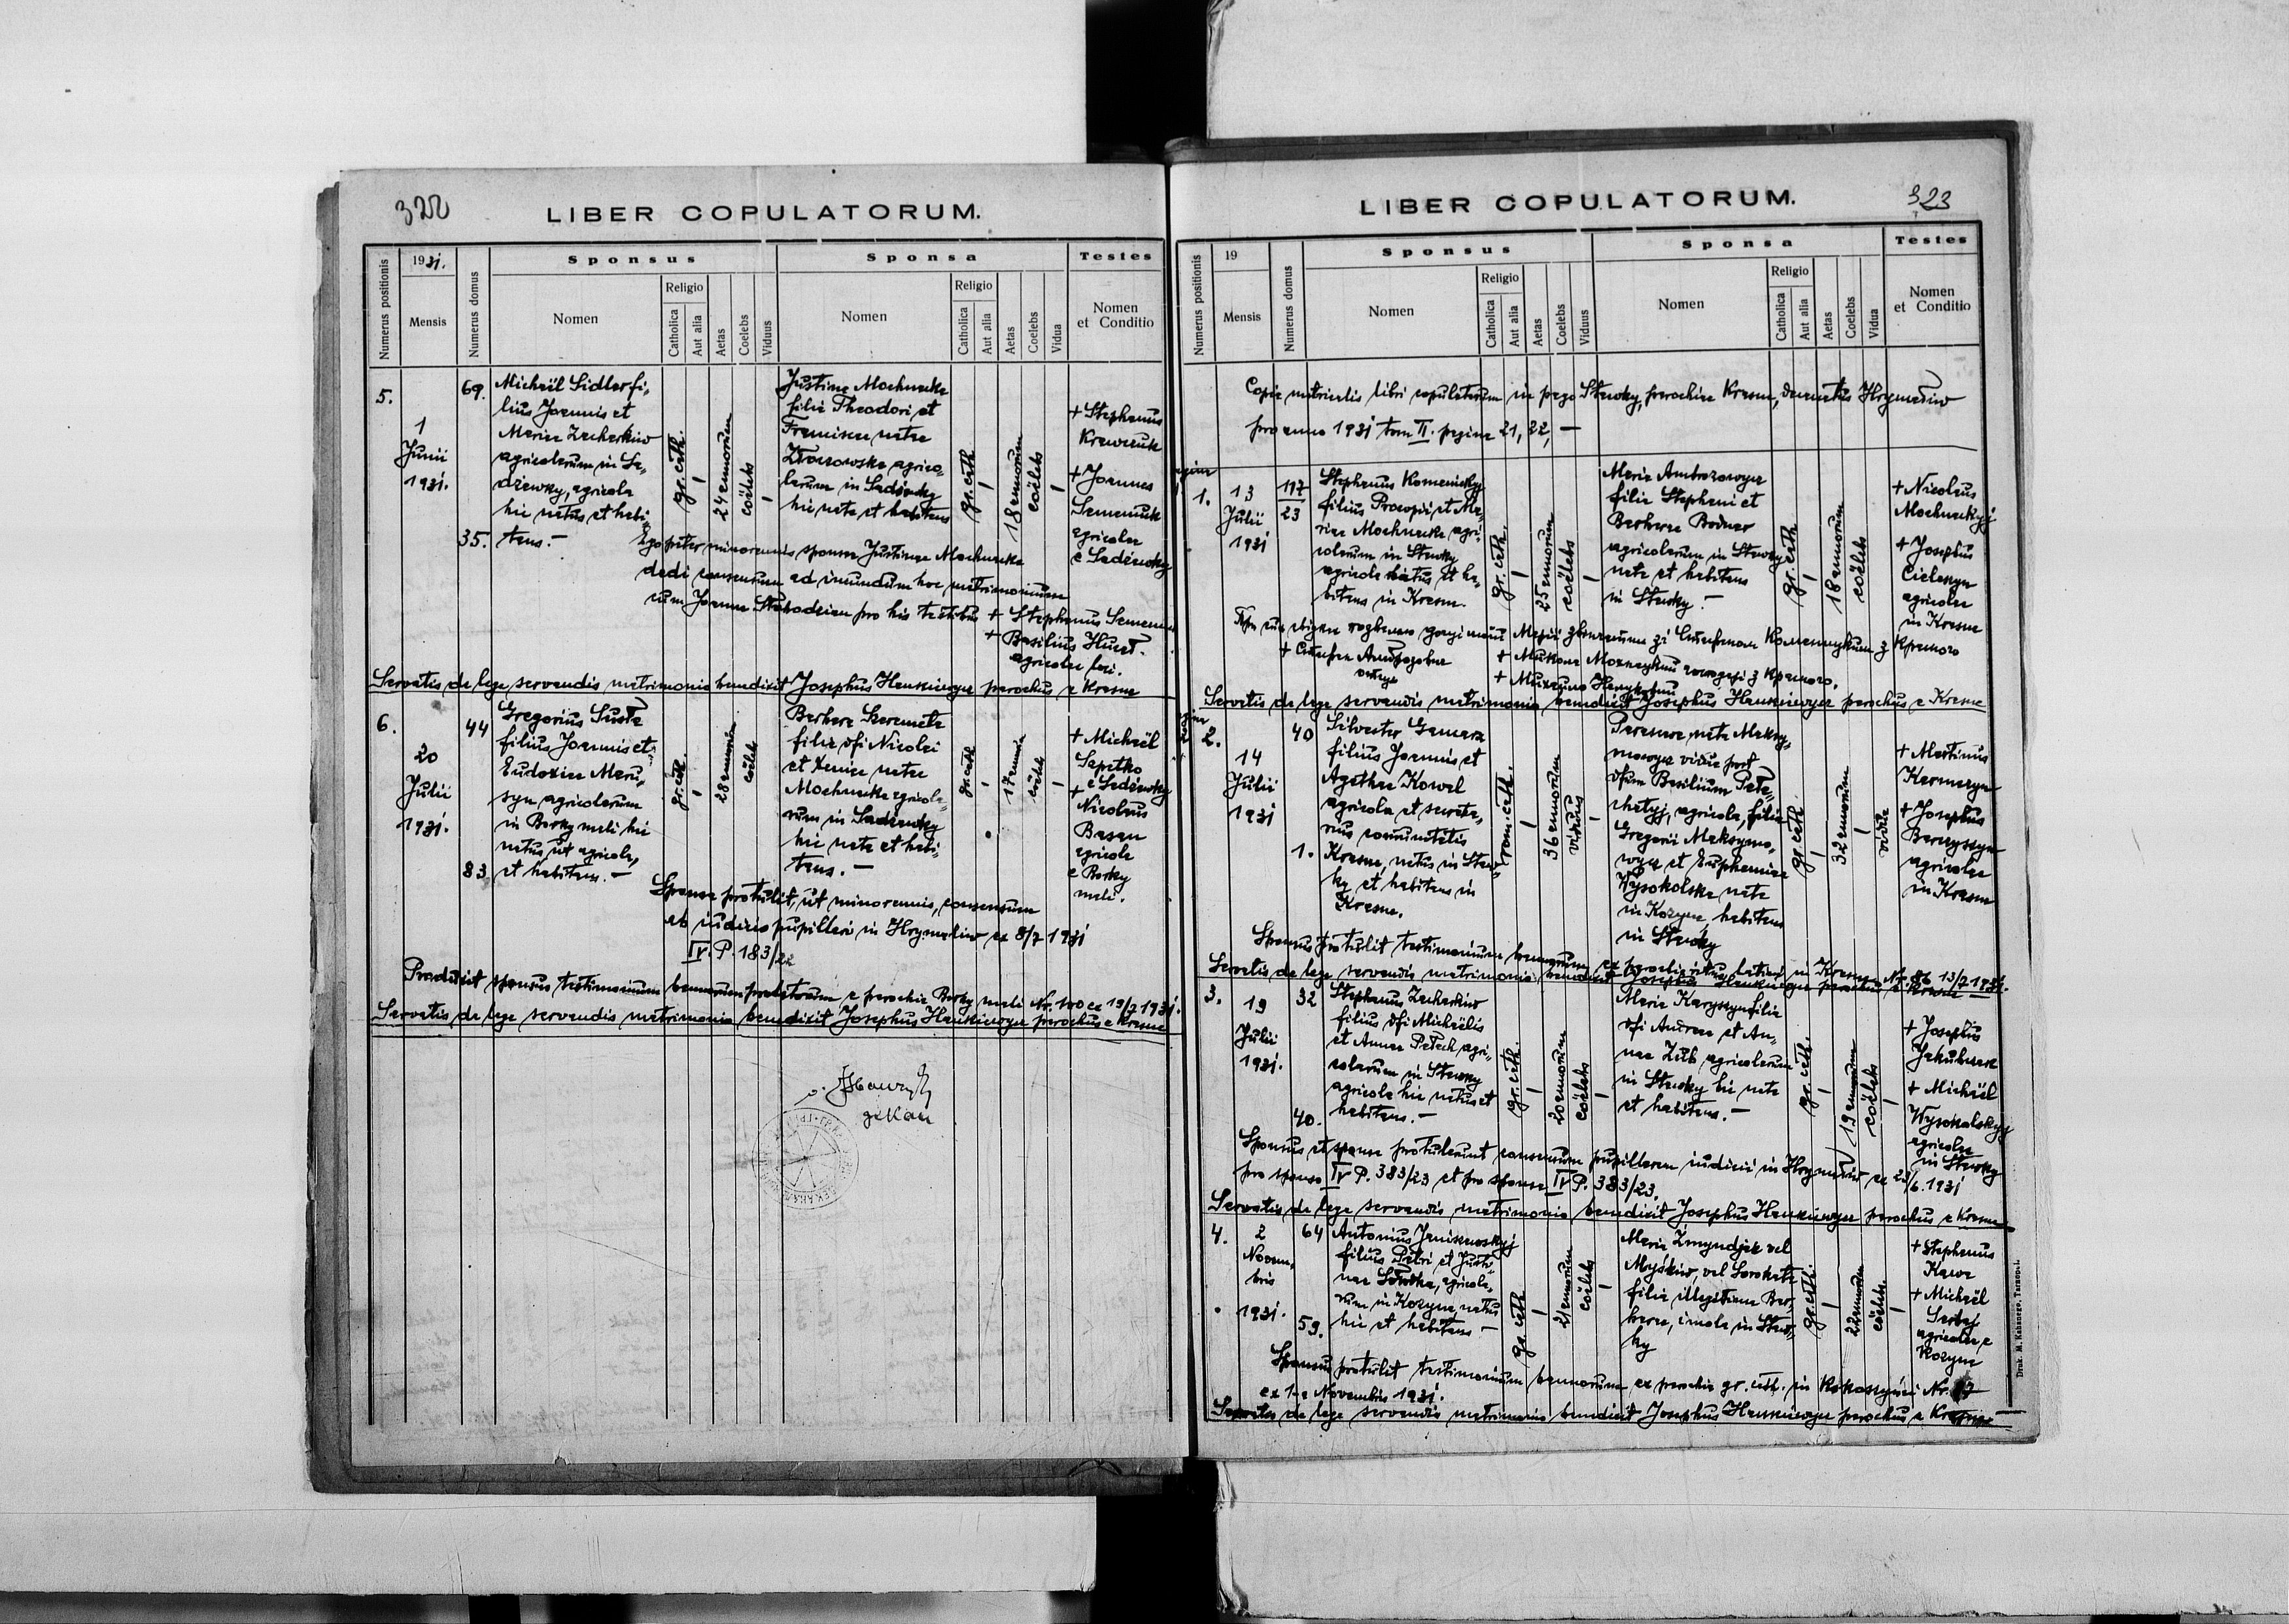 322
LIBER COPULATORUM.
Numerus positionis
1931.
Mensis
Numerus domus
Sponsus
Nomen
Religio
Catholica
Aut alia
Aetas
Coelebs
Viduus
Sponsa
Nomen
Religio
Catholica
Aut alia
Aetas
Coelebs
Vidua
Testes
Nomen
et Conditio
5.
1
Junii
1931.
69.
35.
Michaël Sidlar fi-
lius Joannis et
Mariae Zacharkiw
agricolarum in Sa-
dżawky, agricola
hic natus et habi-
tans.-
gr. cath.
24 annorum
coëlebs
Justina Mochnacka
filia Theodori et
Franciscae natae
agrico-
larum in Sadżawky
hic nata et habitans
gr. cath
18 annorum
coëlebs
+ Stephanus
Krawczuk
+ Joannes
Semeniuk
agricolae
e Sadżawky
Ego pater minorennis sponsae Justinae Mochnacka
dedi consensum ad ineundum hoc matrimonium
cum Joanne pro his testibus + Stephanus
+ Basilius
agricolae loci.
Servatis de lege servandis matrimonio benedixit Josephus Hankiewycz parochus e Krasne
6.
20
Julii
1931.
44
83
Gregorius Susła
filius Joannis et
Eudoxiae Maru-
syn agricolarum
in Borky mali hic
natus, ut agricola,
et habitans.-
gr. cath.
28 annorum
coëlebs
Barbara Szeremeta
filia dfi Nicolai
et Xeniae natae
Mochnacka agricola-
rum in Sadżawky
hic nata et habi-
tans.-
gr. cath
17 annorum
coëlebs
+ Michaël
Sapitko
e Sadżawky
+
Nicolaus
Basan
agricola
e Borky
mali.
Sponsa protulit, ut minorennis, consensum
ab iudicio pupillari in Hrymaliw ex 8/7 1931
IV. P. 183/22
Produxit sponsus testimonium bannorum praelatorum e parochia Borky mali Nr. 100 ex 19/7 1931.
Servatis de lege servandis matrimonio benedixit Josephus Hankiewycz parochus e Krasne
декан
323
LIBER COPULATORUM.
Numerus positionis
19
Mensis
Numerus domus
Sponsus
Nomen
Religio
Catholica
Aut alia
Aetas
Coelebs
Viduus
Sponsa
Nomen
Religio
Catholica
Aut alia
Aetas
Coelebs
Vidua
Testes
Nomen
et Conditio
Copia matricalis libri copulatorum in pago Stawky, parochiae Krasne, decanatus Hrymaliw
pro anno 1931 tom II. pagina 21, 22, -
1.
13
Julii
1931
117
23
Stephanus Komenicky
filius Procopii et Ma-
riae Mochnacka agri-
colarum in Stawky
agricola natus et ha-
bitans in Krasne.
gr. cath.
25 annorum
coëlebs
Maria Ambrozowycz
filia Stephani et
Barbarae Bodnar
agricolarum in Stawky
nata et habitans
in Stawky.-
gr. cath
18 annorum
coëlebs
+ Nicolaus
Mochnackyj
+ Josephus
Cielecyn
agricolae
in Krasne
з Красного
+ Стефан
+ Микола Мохнацкий господарі з Красного.
+ Михайло
Servatis de lege servandis matrimonio benedixit Josephus Hankiewycz parochus e Krasne
2.
14
Julii
1931
40
1.
Silvester Gamara
filius Joannis et
Agathae Kowal
agricola et secreta-
rius comunitatis
Krasne, natus in Staw-
ky et habitans in
Krasne.
rom. cath.
36 annorum
viduus
Parascewa nata Maksy-
mowycz vidua post
dfum Basilium
agricola, filia
Gregorii Maksymo-
wycz et Euphemiae
Wysokolska nata
in Kozyna habitans
in Stawky
gr. cath.
32 annorum
vidua
+ Martinus
Karmazyn
+ Josephus
agricolae
in Krasne
Sponsus protulit testimonium bannorum ex parochia ritus latini in Krasne Nr. 86 13/7 1931.
Servatis de lege servandis matrimonio benedixit Josephus Hankiewycz parochus e Krasne
3.
19
Julii
1931.
32
40.
Stephanus Zacharkiw
filius dfi Michaëlis
et Annae Petech agri-
colarum in Stawky
agricola hic natus et
habitans.-
gr. cath.
20 annorum
coëlebs
Maria filia
dfi Andreae et An-
nae Zub agricolarum
in Stawky hic nata
et habitans.-
gr. cath.
19 annorum
coëlebs
+ Josephus
Jakubczak
+ Michaël
Wysokolskyj
agricolae
in Stawky
Sponsus et sponsa protulerunt consensum pupillarem iudicii in Hrymaliw ex 23/6. 1931
pro sponso IV P. 383/23 et pro sponsa IV P. 383/23.
Servatis de lege servandis matrimonio benedixit Josephus Hankiewycz parochus e Krasne
4.
2
Novem-
bris
1931.
64
59.
Antonius Janiszewskyj
filius Petri et Justi-
nae agricola-
rum in Kozyna, natus
hic et habitans -
gr. cath
21 annorum
coëlebs
Maria Zmyndjak vel
Myśkiw, vel Sorokata
filia illegitima Bar-
barae, incola in Staw-
ky
gr. cath.
22 annorum
coëlebs.
+ Stephanus
Kawa
+ Michaël
Sarbej
agricolae e
Kozyna
Sponsus protulit testimonium bannorum ex parochia gr. cath. in Kokoszyńci Nr. 17
ex 1-e Novembris 1931.
Servatis de lege servandis matrimonio benedixit Josephus Hankiewycz parochus e Krasne
Druk. M. Kahanego, Tarnopol.